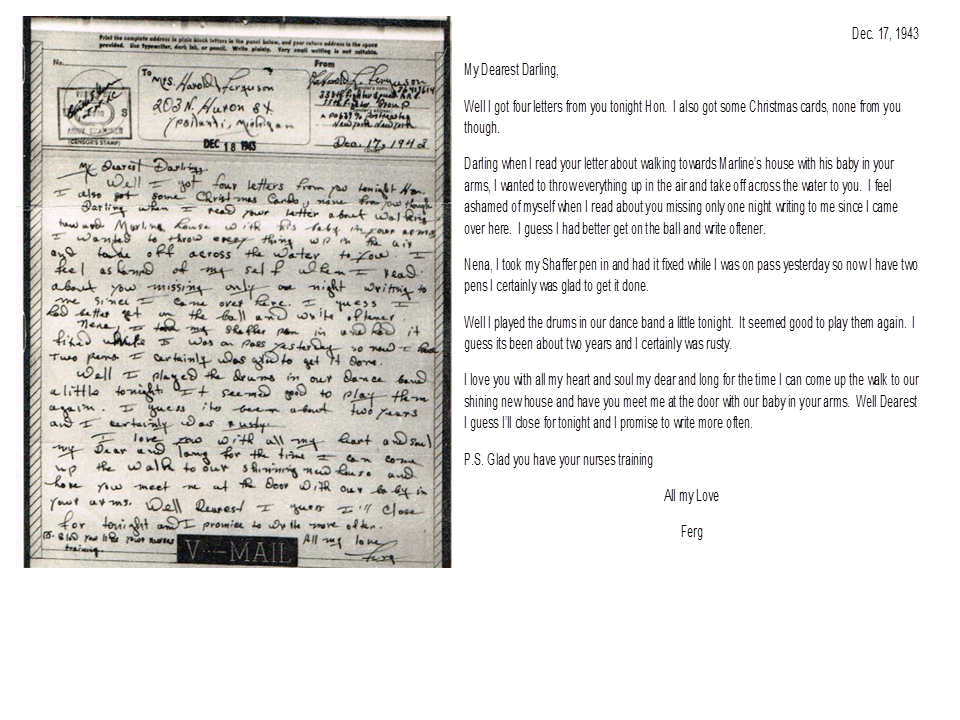 Print the complete address in plain block letters in the panel below, and your return address in the space
provided. Use typewriter, dark ink, or pencil. Write plainly. Very small writing is not suitable.
No.
(CENSOR'S STAMP)
To
Mrs. Harold Ferguson
203 N. Huron St
Ypsilanti, Michigan
DEC 18 1943
From
Harold L. Ferguson
New York New York
Dec. 17, 1943
My Dearest Darling,
Well I got four letters from you tonight Hon.
I also got some Christmas Cards, none from you though
Darling when I read your letter about walking
towards Marline house with his baby in your arms
I wanted to throw every thing up in the air
and take off across the water to you. I
feel ashamed of my self when I read
about you missing only one night writing to
me since I came over here. I guess I
had better get on the ball and write oftener.
Nena, I took my Shaffer pen in and had it
fixed while I was on pass yesterday so now I have
two pens I certainly was glad to get it done.
Well I played the drums in our dance band
a little tonight It seemed good to play them
again. I guess its been about two years
and I certainly was rusty.
I love you with all my heart and soul
my Dear and long for the time I can come
up the walk to our shinning new house and
have you meet me at the door with our baby in
your arms. Well Dearest I guess I'll close
for tonight and I promise to write more often.
P.S. Glad you like your nurses
training.
All my love
Ferg
V···—MAIL
Dec. 17, 1943
My Dearest Darling,
Well I got four letters from you tonight Hon. I also got some Christmas cards, none from you
though.
Darling when I read your letter about walking towards Marline's house with his baby in your
arms, I wanted to throw everything up in the air and take off across the water to you. I feel
ashamed of myself when I read about you missing only one night writing to me since I came
over here. I guess I had better get on the ball and write oftener.
Nena, I took my Shaffer pen in and had it fixed while I was on pass yesterday so now I have two
pens I certainly was glad to get it done.
Well I played the drums in our dance band a little tonight. It seemed good to play them again. I
guess its been about two years and I certainly was rusty.
I love you with all my heart and soul my dear and long for the time I can come up the walk to our
shining new house and have you meet me at the door with our baby in your arms. Well Dearest
I guess I'll close for tonight and I promise to write more often.
P.S. Glad you have your nurses training
All my Love
Ferg